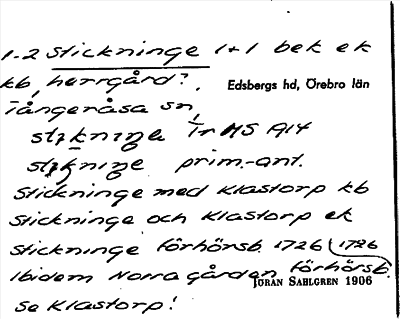 1-2 Stickninge 1+1 bek ek
kb, herrgård?, Edsbergs hd, Örebro län
Tångeråsa sn,
stıknıŋe Ir MS A14
stıknıŋe prim.-ant.
Stickninge med Klastorp kb
Stickninge och Klastorp ek
Stickninge förhörsb. 1726 (1786
Ibidem Norra gården förhörsb.
JÖRAN SAHLGREN 1906
Se Klastorp!